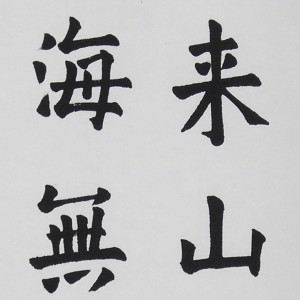 来山
海無